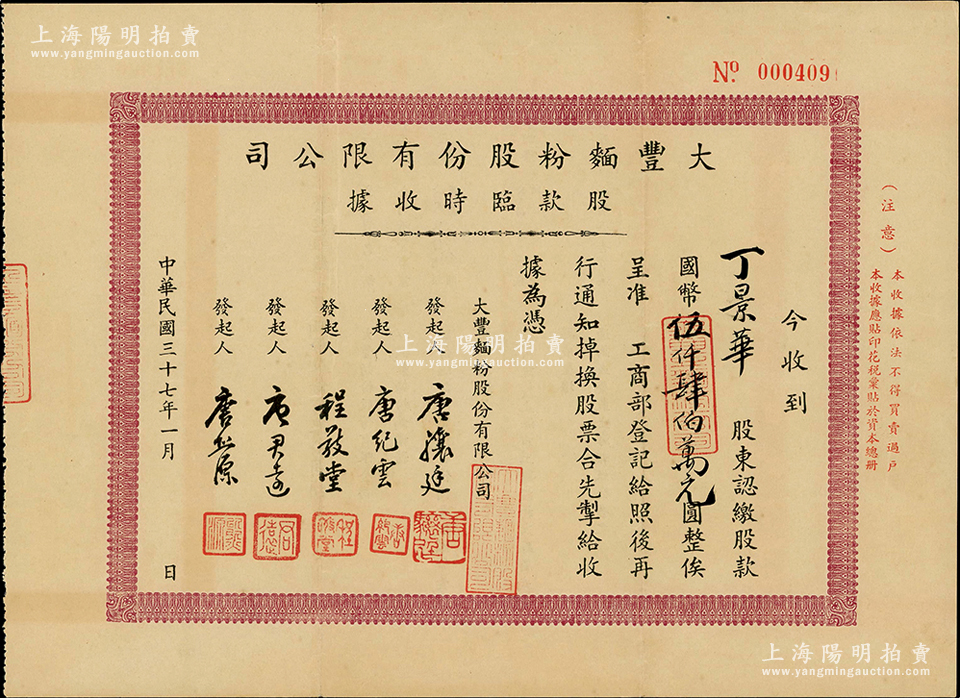 上海陽明拍賣
www.yangmingauction.com
Nº 000409
大豐麵粉股份有限公司
股款臨時收據
（注意）
本收據依法不得買賣過戶
本收據應貼印花稅彙貼於資本總冊
今收到
丁景華 股東認繳股款
國幣伍仟肆佰萬元圓整俟
呈准 工商部登記給照後再
行通知掉換股票合先掣給收
據為憑
大豐麵粉股份有限公司
發起人 唐驤廷
發起人 唐紀雲
發起人 程敬堂
發起人 唐君遠
發起人
中華民國三十七年一月 日
上海陽明拍賣
www.yangmingauction.com
上海陽明拍賣
www.yangmingauction.com